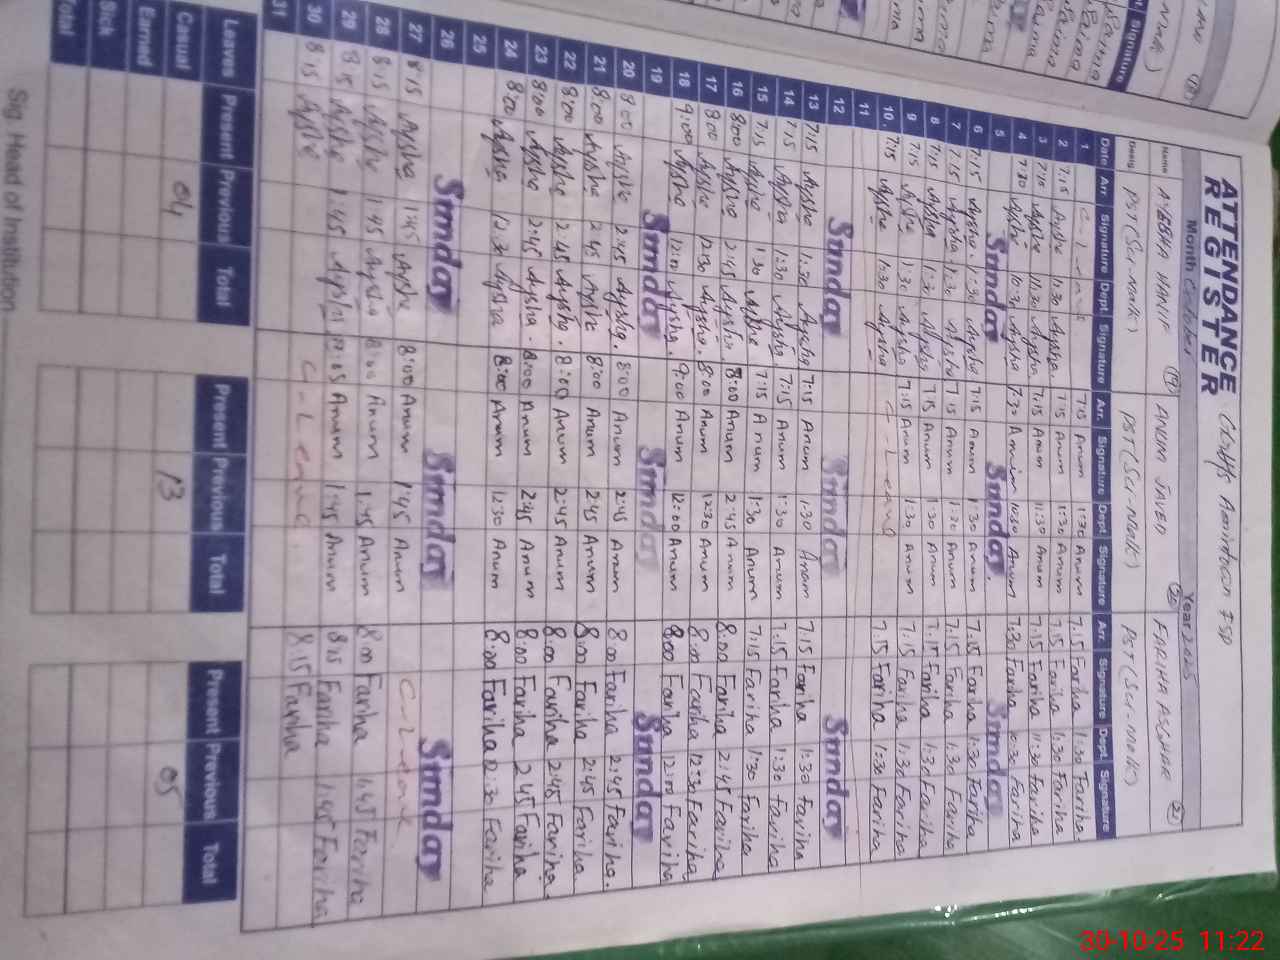 ATTENDANCE
REGISTER
Month October Year 2025
Name AYESHA HANIF (19) ANUM JAVED (20) FARIHA ASGHAR (21)
Desig PST (Sci-Math) PST (Sci-Math) PST (Sci-Math)
Date Arr. Signature Dept. Signature Arr. Signature Dept Signature Arr. Signature Dept. Signature
1 C-Leave 7:15 Anum 1:30 Anum 7:15 Fariha 1:30 Fariha
2 7:15 Aysha 1:30 Aysha 7:15 Anum 1:30 Anum 7:15 Fariha 1:30 Fariha
3 7:15 Aysha 11:30 Aysha 7:15 Anum 11:30 Anum 7:15 Fariha 11:30 Fariha
4 7:30 Aysha 10:30 Aysha 7:30 Anum 10:30 Anum 7:30 Fariha 10:30 Fariha
5 Sunday Sunday Sunday
6 7:15 Aysha 1:30 Aysha 7:15 Anum 1:30 Anum 7:15 Fariha 1:30 Fariha
7 7:15 Aysha 1:30 Aysha 7:15 Anum 1:30 Anum 7:15 Fariha 1:30 Fariha
8 7:15 Aysha 1:30 Aysha 7:15 Anum 1:30 Anum 7:15 Fariha 1:30 Fariha
9 7:15 Aysha 1:30 Aysha 7:15 Anum 1:30 Anum 7:15 Fariha 1:30 Fariha
10 7:15 Aysha 1:30 Aysha C-Leave 7:15 Fariha 1:30 Fariha
11
12 Sunday Sunday Sunday
13 7:15 Aysha 1:30 Aysha 7:15 Anum 1:30 Anum 7:15 Fariha 1:30 Fariha
14 7:15 Aysha 1:30 Aysha 7:15 Anum 1:30 Anum 7:15 Fariha 1:30 Fariha
15 7:15 Aysha 1:30 Aysha 7:15 Anum 1:30 Anum 7:15 Fariha 1:30 Fariha
16 8:00 Aysha 2:45 Aysha 8:00 Anum 2:45 Anum 8:00 Fariha 2:45 Fariha
17 8:00 Aysha 12:30 Aysha 8:00 Anum 12:30 Anum 8:00 Fariha 12:30 Fariha
18 9:00 Aysha 12:10 Aysha 9:00 Anum 12:00 Anum 9:00 Fariha 12:00 Fariha
19 Sunday Sunday Sunday
20 8:00 Aysha 2:45 Aysha 8:00 Anum 2:45 Anum 8:00 Fariha 2:45 Fariha
21 8:00 Aysha 2:45 Aysha 8:00 Anum 2:45 Anum 8:00 Fariha 2:45 Fariha
22 8:00 Aysha 2:45 Aysha 8:00 Anum 2:45 Anum 8:00 Fariha 2:45 Fariha
23 8:00 Aysha 2:45 Aysha 8:00 Anum 2:45 Anum 8:00 Fariha 2:45 Fariha
24 8:00 Aysha 12:30 Aysha 8:00 Anum 12:30 Anum 8:00 Fariha 12:30 Fariha
25
26 Sunday Sunday Sunday
27 8:15 Aysha 1:45 Aysha 8:00 Anum 1:45 Anum C-Leave
28 8:15 Aysha 1:45 Aysha 8:00 Anum 1:45 Anum 8:00 Fariha 1:45 Fariha
29 8:15 Aysha 1:45 Aysha 8:05 Anum 1:45 Anum 8:15 Fariha 1:45 Fariha
30 8:15 Aysha C-Leave 8:15 Fariha
31
Leaves Present Previous Total Present Previous Total Present Previous Total
Casual 04 13 05
Earned
Sick
Total
Sig. Head of Institution
30-10-25 11:22